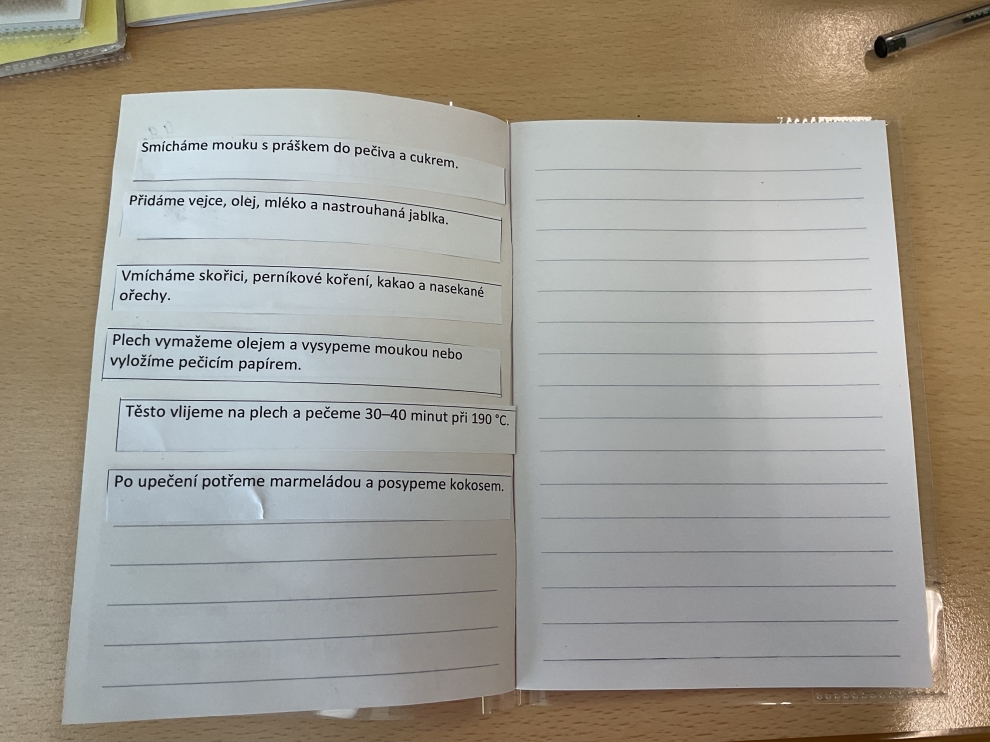 Smícháme mouku s práškem do pečiva a cukrem.
Přidáme vejce, olej, mléko a nastrouhaná jablka.
Vmícháme skořici, perníkové koření, kakao a nasekané
ořechy.
Plech vymažeme olejem a vysypeme moukou nebo
vyložíme pečicím papírem.
Těsto vlijeme na plech a pečeme 30–40 minut při 190 °C.
Po upečení potřeme marmeládou a posypeme kokosem.